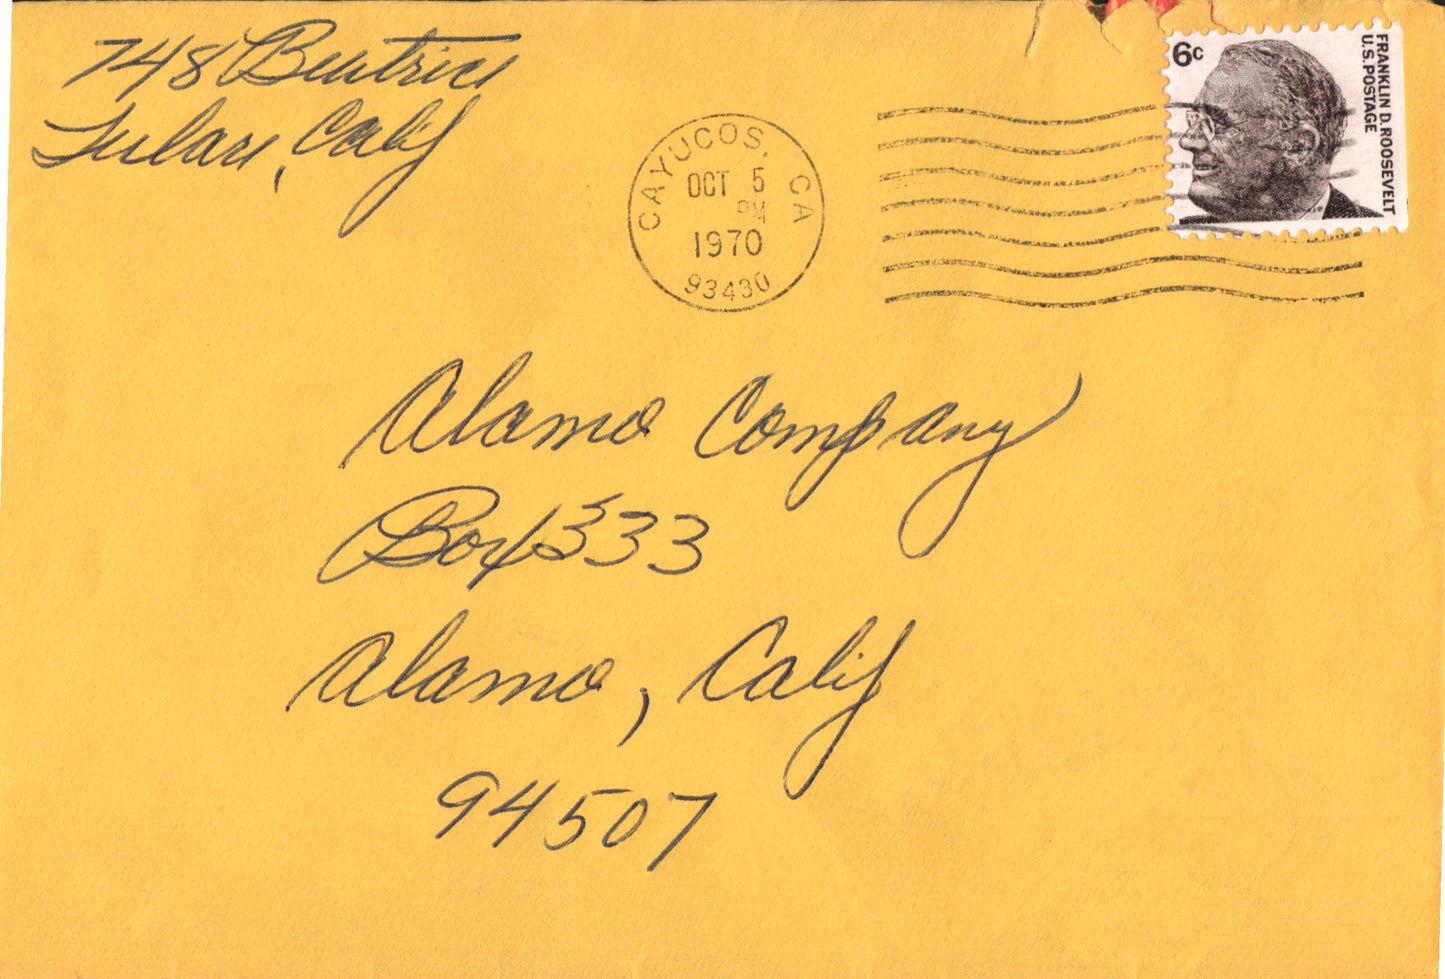 748 Beatrice
Tulare, Calif
CAYUCOS, CA
OCT 5
PM
1970
93430
6c
FRANKLIN D. ROOSEVELT
U.S. POSTAGE
Alamo Company
Box 333
Alamo, Calif
94507